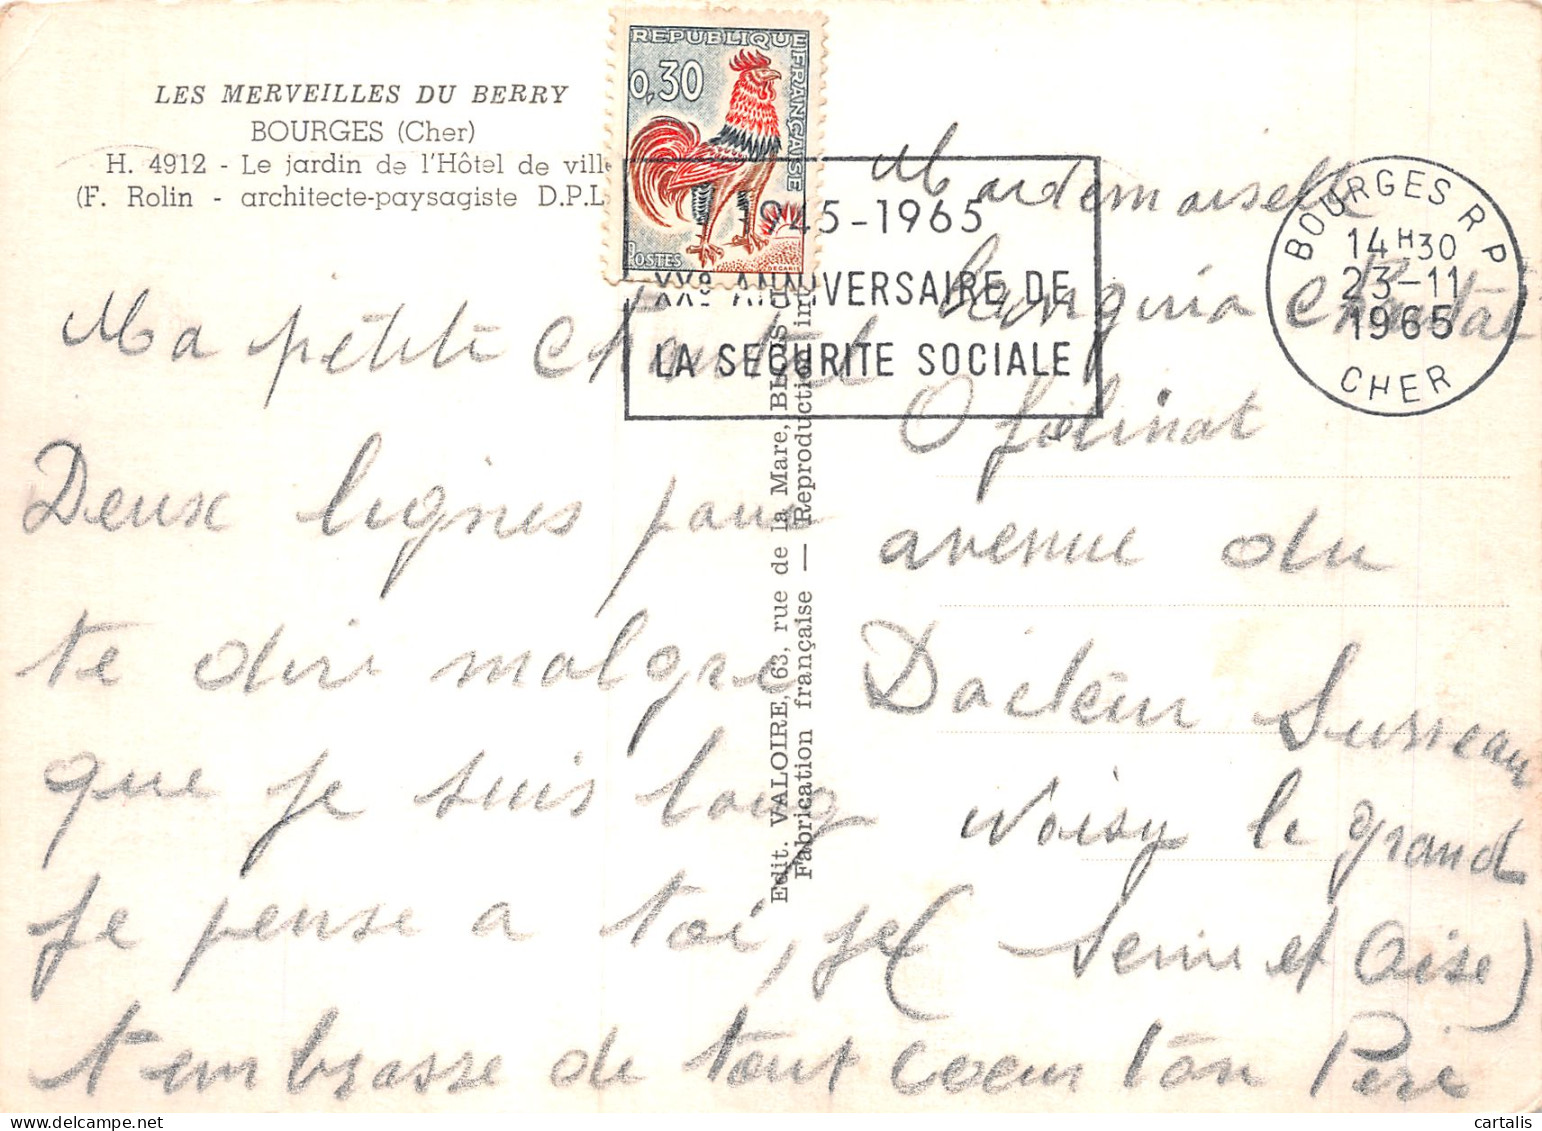 LES MERVEILLES DU BERRY
BOURGES (Cher)
H. 4912 - Le jardin de l'Hôtel de vill
(F. Rolin - architecte-paysagiste D.P.L
REPUBLIQUE FRANÇAISE
0,30
POSTES
DECARIS
1945-1965
XXe ANNIVERSAIRE DE
LA SECURITE SOCIALE
BOURGES R P
14 H30
23-11
1965
CHER
Ma petite Chantal
Deux lignes pour
te dire malgre
que je suis loug
je pense a toi, je
t'embrasse de tout coeur ton Père
Mademoiselle
Chantal
avenue du
Docteur Surreau
Noisy le grand
(Seine et Oise)
Edit. VALOIRE, 63, rue de la Mare, BLOIS
Fabrication française — Reproduction in
cartalis